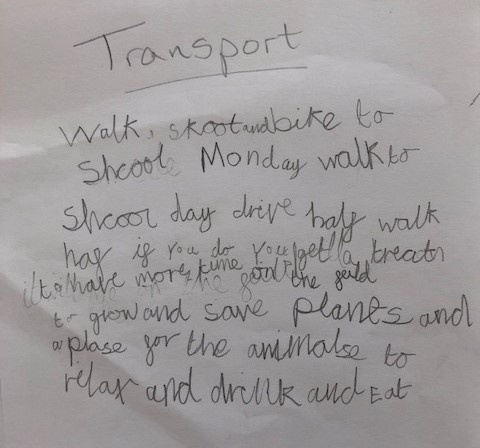 Transport
Walk, skoot and bike to
Shcool Monday walk to
Shcool day drive half walk
haf if you do you get a breath
to have more time the feild
to grow and save plantes and
a plase for the animalse to
relax and drink and Eat